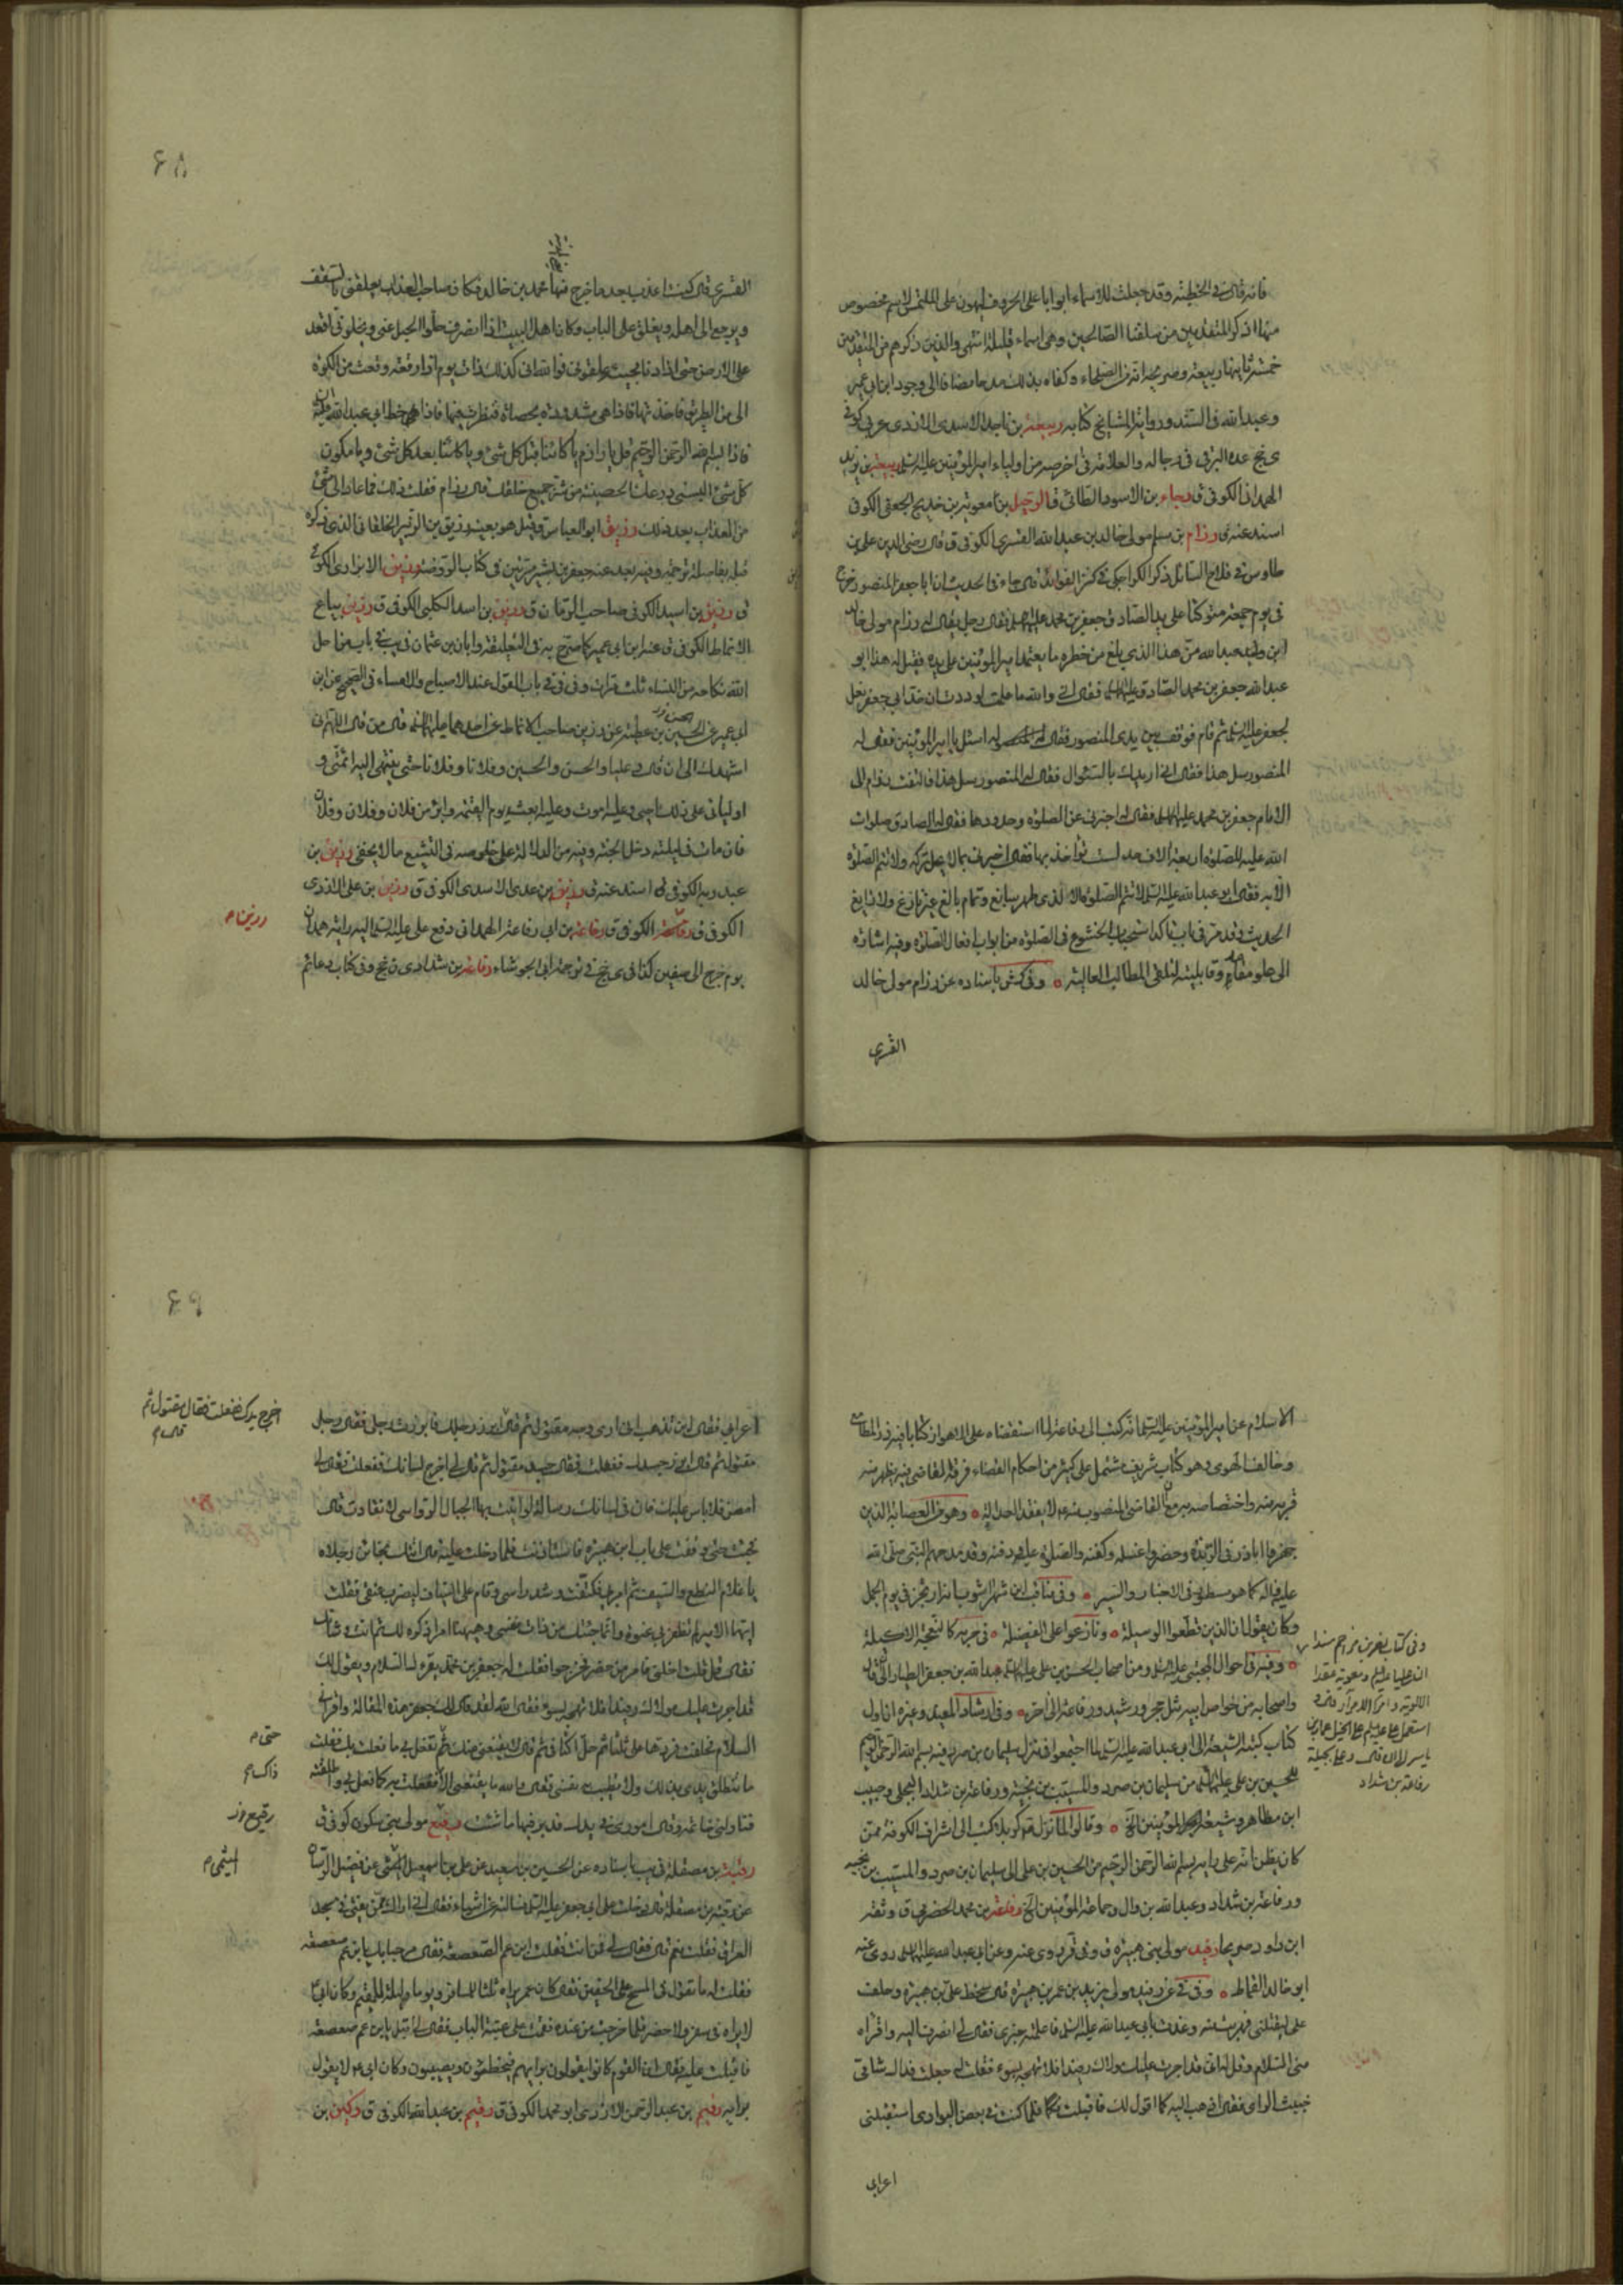 فانه قال في الخطبة وقد جعلت للاسماء ابوابا على الحروف ليهون على الملتمس لاسم مخصوص
منها اذكر المتقدمين من سلفنا الصالحين وهي اسماء قليلة انتهى والذين ذكرهم من المتقدمين
خمسة ثانيها ربيعة وصريحه انه من الصلحاء وكفاه بذلك مدحا مضافا الى وجود ابن ابي عمير
وعبد الله في السند ورواية المشايخ كتابه ربيعة بن ناجد الاسدي الازدي عربي كوفي
ى نج عده البرقي في رجاله والعلامة في اخر صه من اولياء امير المؤمنين عليه السلم ربيعة بن يزيد
الهمداني الكوفي ق رجاء بن الاسود الطائي ق الرحيل بن معوية بن خديج الجعفي الكوفي
اسند عنه ق رزام بن مسلم مولى خالد بن عبد الله القسري الكوفي ق قال رضي الدين علي بن
طاوس في فلاح السائل ذكر الكراجكي في كنز الفوائد قال جاء في الحديث ان ابا جعفر المنصور خرج
في يوم جمعة متوكئا على يد الصادق جعفر بن محمد عليهما السلم فقال رجل يقال له رزام مولى خالد
ابن عبد الله من هذا الذي بلغ من خطره ما يعتمد امير المؤمنين على يده فقيل له هذا ابو
عبد الله جعفر بن محمد الصادق عليه السلم فقال اني والله ما علمت لوددت ان خد ابي جعفر نعل
لجعفر عليه السلم ثم قام فوقف بين يدي المنصور فقال له اسئل يا امير المؤمنين فقال له
المنصور سل هذا فقال اني اريدك بالسئوال فقال له المنصور سل هذا فالتفت رزام الى
الامام جعفر بن محمد عليهما السلم فقال له اخبرني عن الصلوة وحدودها فقال له الصادق صلوات
الله عليه للصلوة اربعة الاف حد لست تؤاخذ بها فقال اخبرني بما لا يحل تركه ولا تتم الصلوة
الا به فقال ابو عبد الله عليه السلم لا تتم الصلوة الا لذي طهر سابغ وتمام بالغ غير نازغ ولا زايغ
الحديث وقد مر في باب تاكد استحباب الخشوع في الصلوة من ابواب افعال الصلوة وفيه اشارة
الى علو مقامه وقابليته لتلقي المطالب العالية وفي كش باسناده عن رزام مولى خالد
القسري
۶۸
القسري قال كنت اعذب بعد ما خرج منها محمد بن خالد فكان صاحب العذاب يعلقني بالسقف
ويرجع الى اهله ويغلق على الباب وكان اهل البيت اذا انصرف حلوا الحبل عني ويخلوني اقعد
على الارض حتى اذا دنا مجيئه علقوني فوالله اني كذلك ذات يوم اذا رقعة وقعت من الكوة
الي من الطريق فاخذتها فاذا هي مشدودة بحصاة فنظرت فيها فاذا هو خط ابي عبد الله عليه السلم
فاذا بسم الله الرحمن الرحيم قل يا رزام يا كائنا قبل كل شئ ويا كائنا بعد كل شئ ويا مكون
كل شئ البسني درعك الحصينة من شر جميع خلقك قال رزام فقلت ذلك فما عاد الي شئ
من العذاب بعد ذلك رزيق ابو العباس وقيل هو بعينه رزيق بن الزبير الخلقاني الذي ذكره
قبله بفاصلة ترجمة وفيه بعد عنه جعفر بن بشير مرتين في كتاب الروضة رزيق الابزاري الكوفي
ق رزيق بن اسيد الكوفي صاحب الرمان ق رزيق بن اسد الكلبي الكوفي ق رزين بياع
الانماط الكوفي ق عنه ابن ابي عمير كما صرح به في التعليقة وابان بن عثمان في يب في باب من احل
الله نكاحه من النساء ثلث مرات وفي في في باب القول عند الاصباح والامساء في الصحيح عن ابن
ابي عمير عن الحسن بن عطية عن رزين صاحب الانماط عن احدهما عليهما السلم قال من قال اللهم اني
اشهدك الى ان قال وعليا والحسن والحسين وفلانا وفلانا حتى ينتهي اليه ائمتي و
اوليائي على ذلك احيى وعليه اموت وعليه ابعث يوم القيمة وابرئ من فلان وفلان وفلان
فان مات في ليلته دخل الجنة وفيه من الدلالة على خلوصه في التشيع ما لا يخفى رزيق بن
عبد ربه الكوفي ق اسند عنه ق رزيق بن عدي الاسدي الكوفي ق رزين بن علي الازدي
الكوفي ق الكوفي ق رفاعة بن ابي رفاعة الهمداني دفع علي عليه السلم اليه راية همدان
يوم خرج الى صفين كذا في ى نج في ترجمة ابي الجوشاء رفاعة بن شداد ى ن نج وفي كتاب دعائم
الاسلام عن امير المؤمنين عليه السلم انه كتب الى رفاعة لما استقضاه على الاهواز كتابا فيه ذر المطامع
وخالف الهوى وهو كتاب شريف مشتمل على كثير من احكام القضاء فرقناها في يظهر منه
قربه منه واختصاصه به مع ان القاضي المنصوب منه لا بفقد العدالة وهو من العصابة الذين
جهزوا اباذر في الربذة وحضروا غسله وكفنه والصلوة عليه ودفنه وقد مدحهم النبي صلى الله
عليه واله كما هو مسطور في الاخبار والسير وفي مناقب ابن شهر اشوب انه ارتجز في يوم الجمل
وكان يقول ان الذين قطعوا الوسيلة ونازعوا على الفضيلة في حربه كالنعجة الاكيلة
وفيه في احوال المجتبى عليه السلم ومن اصحاب الحسن بن علي عليهما السلم عبد الله بن جعفر الطيار الى ان قال
واصحابه من خواص ابيه مثل حجر ورشيد ورفاعة الى اخره وفي ارشاد المفيد وغيره ان اول
كتاب كتبه الشيعة الى ابي عبد الله عليه السلم لما اجتمعوا في منزل سليمان بن صرد فيه بسم الله الرحمن الرحيم
للحسين بن علي عليهما السلم من سليمان بن صرد والمسيب بن نجبة ورفاعة بن شداد البجلي وحبيب
ابن مظاهر وشيعته من المؤمنين الخ وقالوا لما نزل قرب كربلا كتب الى اشراف الكوفة ممن
كان يظن انه على رايه بسم الله الرحمن الرحيم من الحسين بن علي الى سليمان بن صرد والمسيب بن نجبه
ورفاعة بن شداد وعبد الله بن وال وجماعة المؤمنين الخ رفاعة بن محمد الحضرمي ق وثقه
ابن داود صريحا رفيد مولى بني هبيرة ق وفي قر روى عنه وعن ابي عبد الله عليهما السلم روى عنه
ابو خالد القماط وفي في عن رفيد مولى يزيد بن عمر بن هبيرة قال سخط علي بن هبيرة وحلف
علي ليقتلني فهربت منه وعذت بابي عبد الله عليه السلم فاعلمته خبري فقال لي انصرف اليه واقراه
مني السلام وقل له اني قد اجرت عليك مولاك رفيدا فلا تهجه بسوء فقلت له جعلت فداك شامي
خبيث الراى فقال اذهب اليه كما اقول لك فاقبلت فلما كنت في بعض البوادي استقبلني
اعرابي
وفي كتاب نصر بن مزاحم مسندا
ان عليا عليه السلم ومعوية عقدا
الالوية وامرا الامراء قال و
استعمل علي عليه السلم على الخيل عمار بن
ياسر الى ان قال وعلى بجيلة
رفاعة بن شداد
۶۹
اعرابي فقال اين تذهب اني ارى وجه مقتول ثم قال ابرز رجلك فابرزت رجلي فقال رجل
مقتول ثم قال ابرز جسدك ففعلت فقال جسد مقتول ثم قال لي اخرج لسانك ففعلت فقال لي
امض فلا باس عليك فان في لسانك رسالة لو اتيت بها الجبال الرواسي لانقادت قال
فجئت حتى وقفت على باب ابن هبيرة فاستاذنت فلما دخلت عليه قال اتتك بخائن رجلاه
يا غلام النطع والسيف ثم امر بي فكتفت وشد راسي وقام علي السياف ليضرب عنقي فقلت
ايها الامير لم تظفر بي عنوة وانما جئتك من ذات نفسي وهيهنا امر اذكره لك ثم انت وشانك
فقال قل فقلت اخلني فامر من حضر فخرجوا فقلت له جعفر بن محمد يقرءك السلام ويقول لك
قد اجرت عليك مولاك رفيدا فلا تهجه بسوء فقال الله لقد قال لك جعفر هذه المقالة واقراني
السلام فحلفت فردها علي ثلثا ثم حل اكتافي ثم قال لا يقنعني منك تفعل بي ما فعلت بك فقلت
ما تنطلق يدي بذلك ولا تطيب به نفسي فقال والله ما يقنعني الا ففعلت به كما فعل بي واطلقته
فناولني خاتمه وقال اموري في يدك فدبر فيها ما شئت رفيع مولى بني سكون كوفي ق
رقبة بن مصقلة في يب باسناده عن الحسين بن سعيد عن علي بن اسمعيل الميثمي عن فضيل الرسان
عن رقبة بن مصقلة قال دخلت على ابي جعفر عليه السلم فسالته عن اشياء فقال اني اراك ممن يفتي في مسجد
العراق فقلت نعم قال فقال لي من انت فقلت ابن عم الصعصعة فقال مرحبا بك يا ابن عم صعصعة
فقلت له ما تقول في المسح على الخفين فقال كان عمر يراه ثلثا للمسافر ويوما وليلة للمقيم وكان ابي
لا يراه في سفر ولا حضر فلما خرجت من عنده فقمت على عتبة الباب فقال لي اقبل يا ابن عم صعصعة
فاقبلت عليه فقال ان القوم كانوا يقولون برايهم فيخطئون ويصيبون وكان ابي لا يقول
برايه رقيم بن عبد الرحمن الازدي ابو محمد الكوفي ق رقيم بن عبد الله الكوفي ق ركين بن
اخرج يدك ففعلت فقال مقتول ثم
قال
حتى م
ذاك م
رفيع وز
الميثمي م